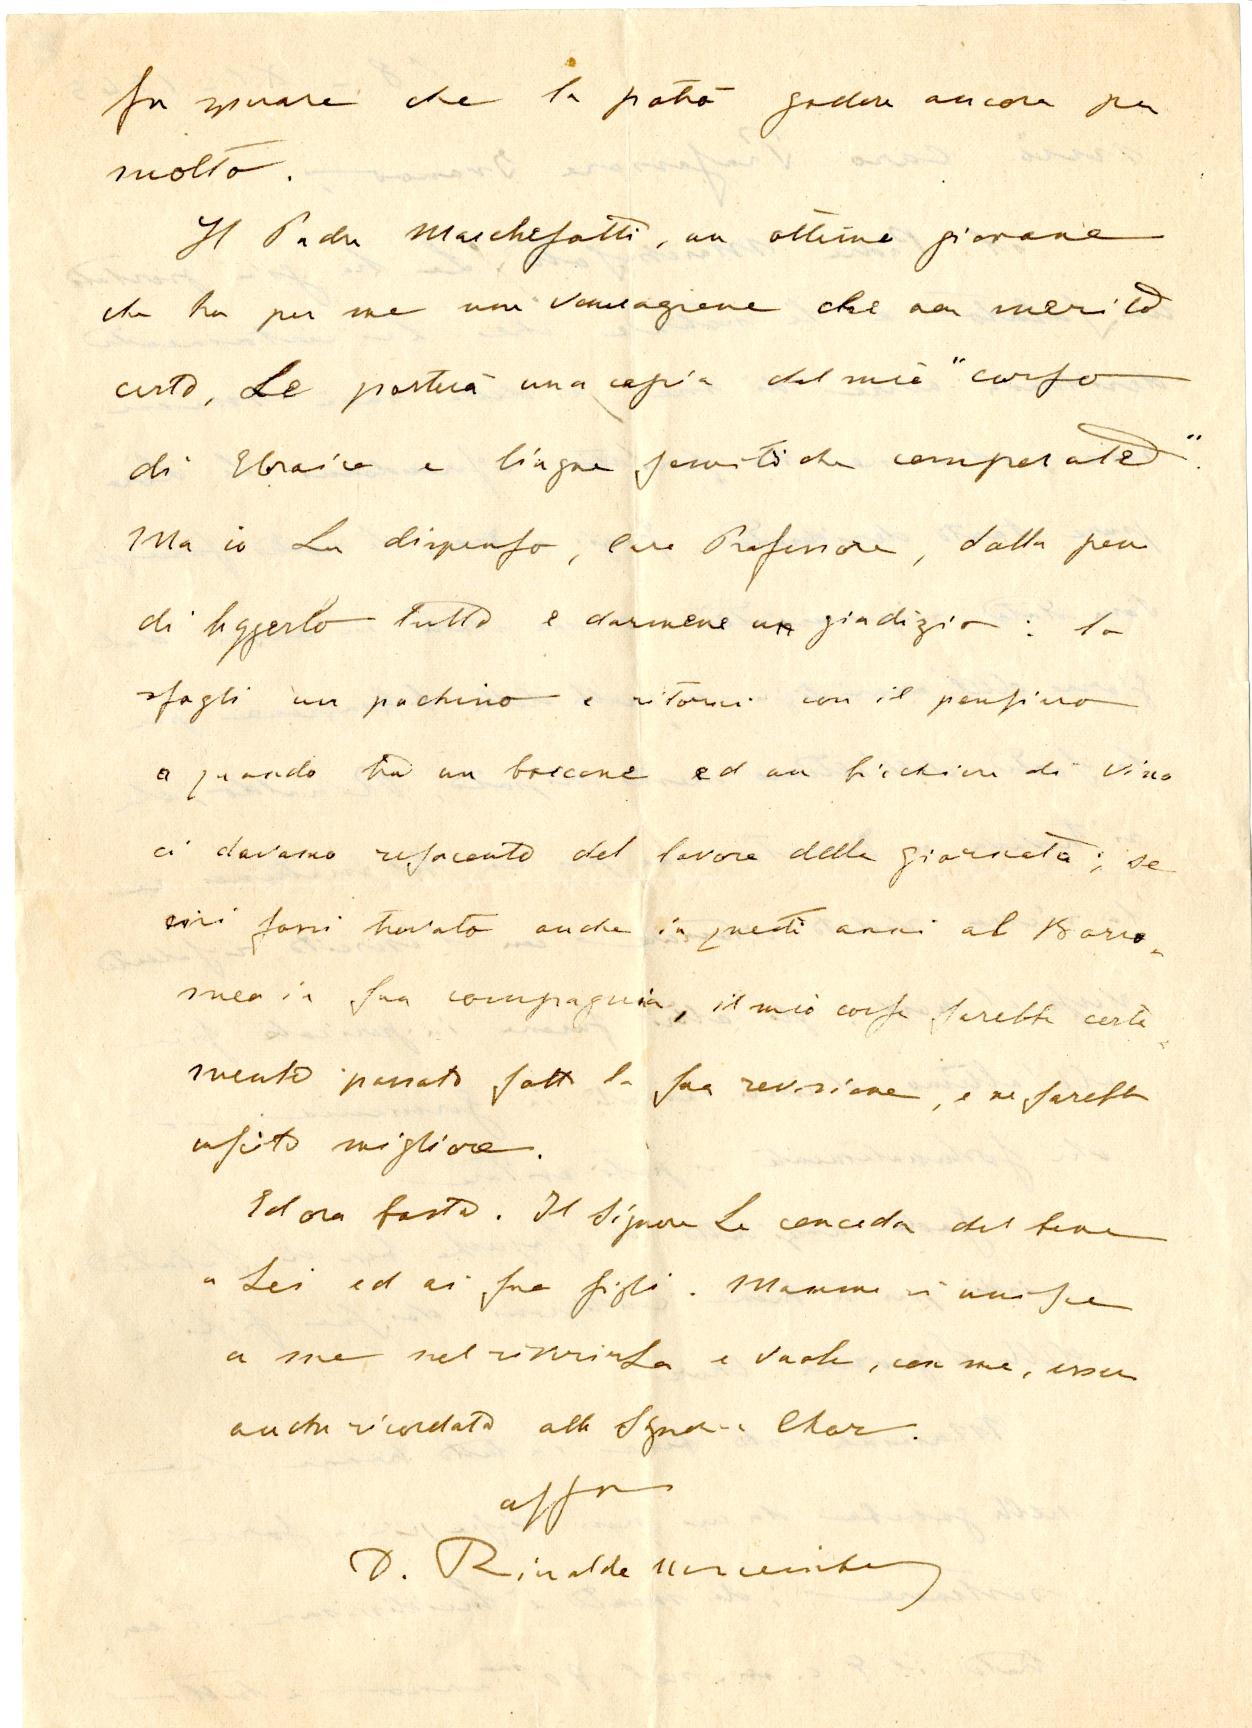 fa sperare che la potrà godere ancora per
molto.
Il Padre Marchesotti, un ottimo giovane
che ha per me una venerazione che non merito
certo, Le porterà una copia del mio "corso
di Ebraico e lingue semitiche comparate".
Ma io La dispenso, Caro Professore, dalla pena
di leggerlo tutto e darmene un giudizio: lo
sfogli un pochino e ritorni con il pensiero
a quando tra un boccone ed un bicchiere di vino
ci davamo resoconto del lavoro della giornata; se
mi fossi trovato anche in questi anni al Borro-
meo in Sua compagnia, il mio corso sarebbe certa-
mente passato sotto la Sua revisione, e ne sarebbe
uscito migliore.
Ed ora basta. Il Signore Le conceda del bene
a Lei ed ai suoi figli. Mamma si unisce
a me nel riverirLa e vuole, con me, essere
anche ricordata alla Signora Char.
aff.mo
D. Rinaldo